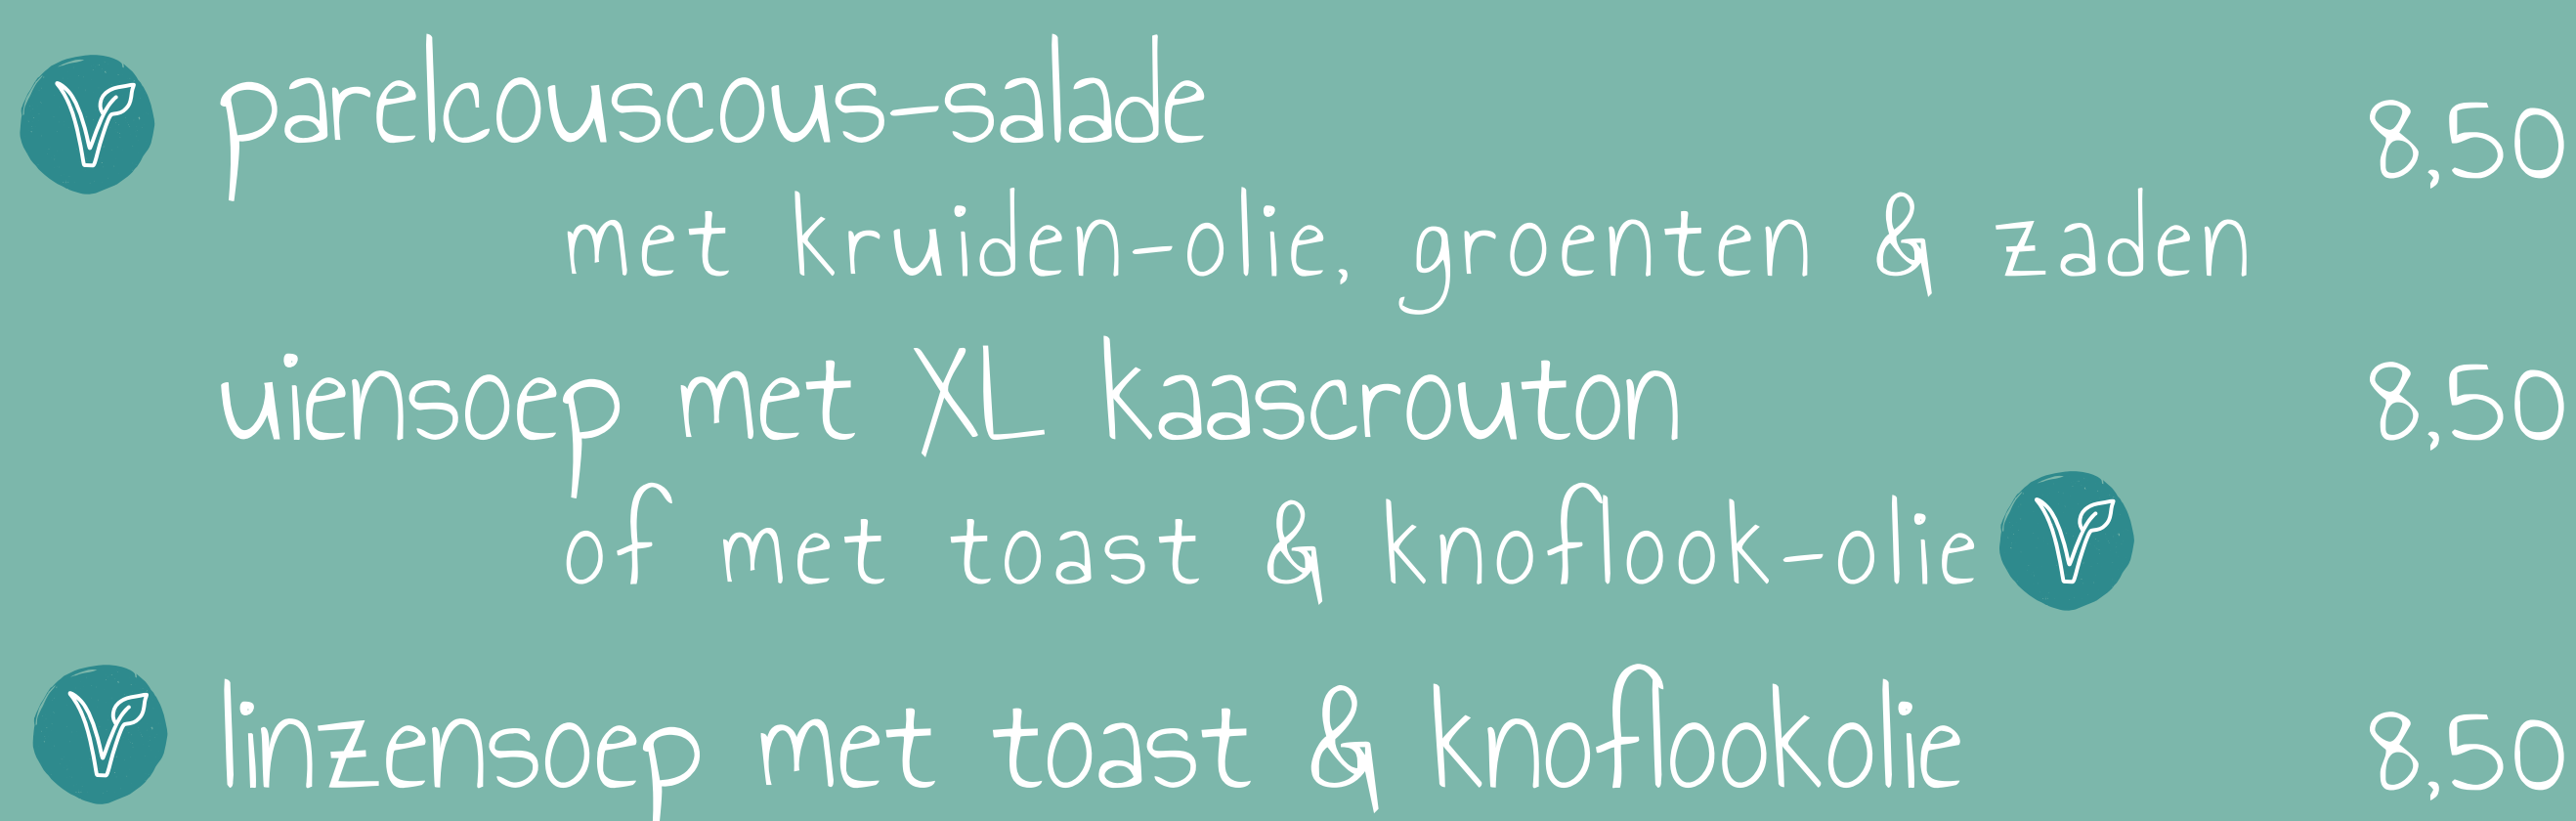 parelcouscous-salade 8,50
met kruiden-olie, groenten & zaden
uiensoep met XL kaascrouton 8,50
of met toast & knoflook-olie V
linzensoep met toast & knoflookolie 8,50